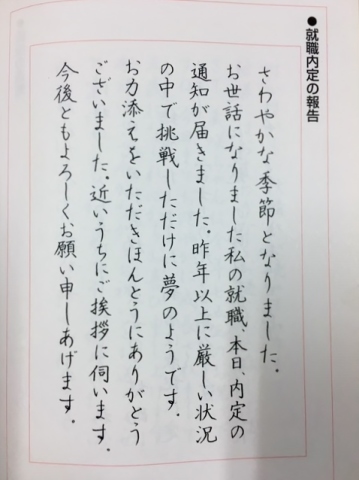 ●就職内定の報告
さわやかな季節となりました。
お世話になりました私の就職、本日、内定の
通知が届きました。昨年以上に厳しい状況
の中で挑戦しただけに夢のようです。
お力添えをいただきほんとうにありがとう
ございました。近いうちにご挨拶に伺います。
今後ともよろしくお願い申しあげます。